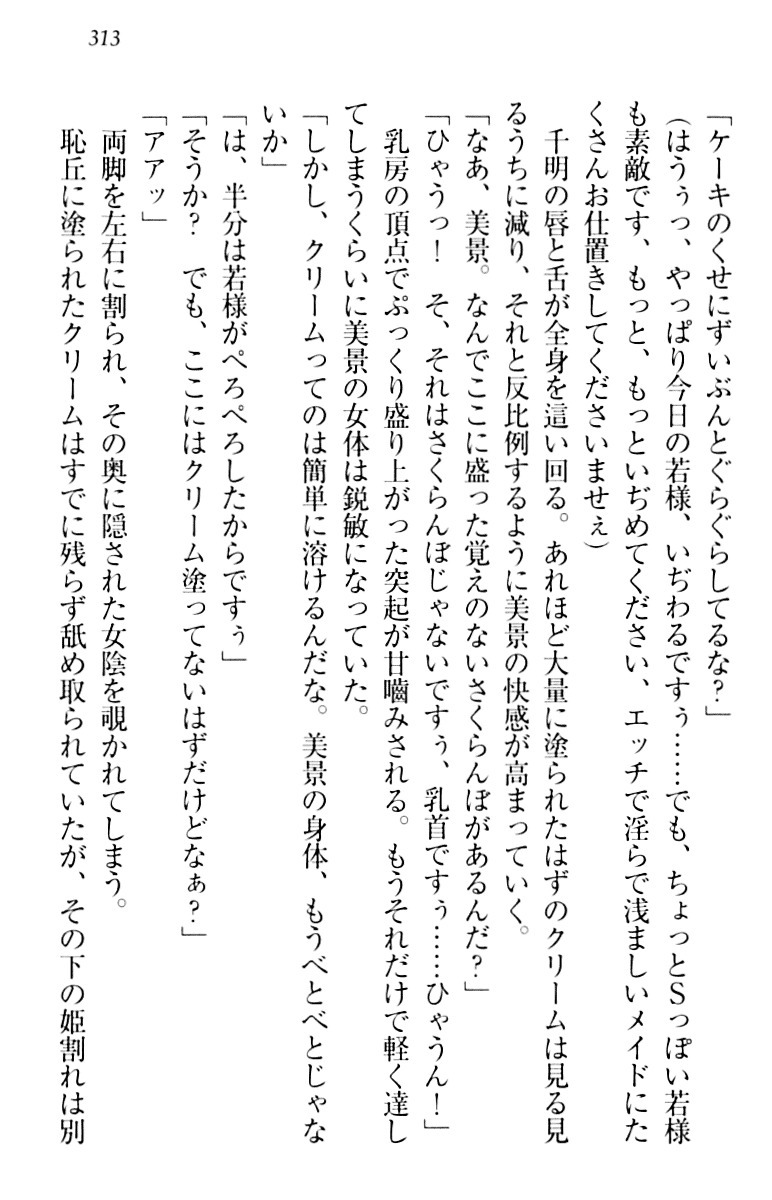 313
「ケーキのくせにずいぶんとぐらぐらしてるな？」
（はうぅっ、やっぱり今日の若様、いぢわるですぅ……でも、ちょっとSっぽい若様
も素敵です、もっと、もっといぢめてください、エッチで淫らで浅ましいメイドにた
くさんお仕置きしてくださいませぇ）
　千明の唇と舌が全身を這い回る。あれほど大量に塗られたはずのクリームは見る見
るうちに減り、それと反比例するように美景の快感が高まっていく。
「なあ、美景。なんでここに盛った覚えのないさくらんぼがあるんだ？」
「ひゃうっ！　そ、それはさくらんぼじゃないですぅ、乳首ですぅ……ひゃうん！」
　乳房の頂点でぷっくり盛り上がった突起が甘嚙みされる。もうそれだけで軽く達し
てしまうくらいに美景の女体は鋭敏になっていた。
「しかし、クリームってのは簡単に溶けるんだな。美景の身体、もうべとべとじゃな
いか」
「は、半分は若様がぺろぺろしたからですぅ」
「そうか？　でも、ここにはクリーム塗ってないはずだけどなぁ？」
「アアッ」
　両脚を左右に割られ、その奥に隠された女陰を覗かれてしまう。
　恥丘に塗られたクリームはすでに残らず舐め取られていたが、その下の姫割れは別